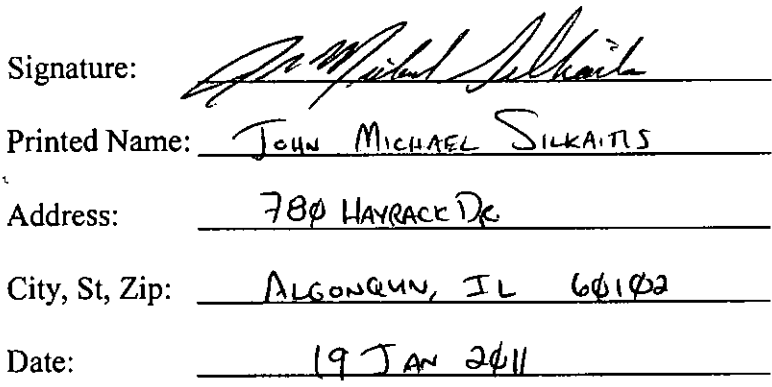 Signature: John Michael Silkaitis
Printed Name: JOHN MICHAEL SILKAITIS
Address: 780 HAYRACK DR.
City, St, Zip: ALGONQUIN, IL 60102
Date: 19 JAN 2011